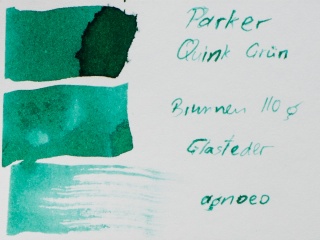 Parker
Quink Grün
Brunnen 110 g
Glasfeder
apnoeo